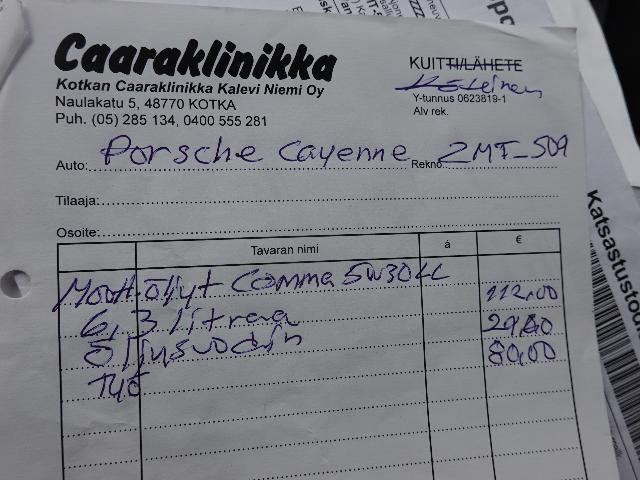 Caaraklinikka
Kotkan Caaraklinikka Kalevi Niemi Oy
Naulakatu 5, 48770 KOTKA
Puh. (05) 285 134, 0400 555 281
KUITTI/LÄHETE
Käteinen
Y-tunnus 0623819-1
Alv rek.
Auto: Porsche Cayenne Rekno: ZMT-509
Tilaaja:
Osoite:
Tavaran nimi á €
Moott.öljyt Comma 5W30LL
6,3 litraa 112,00
Öljynsuodin 29,00
Työ 80,00
Katsastustod